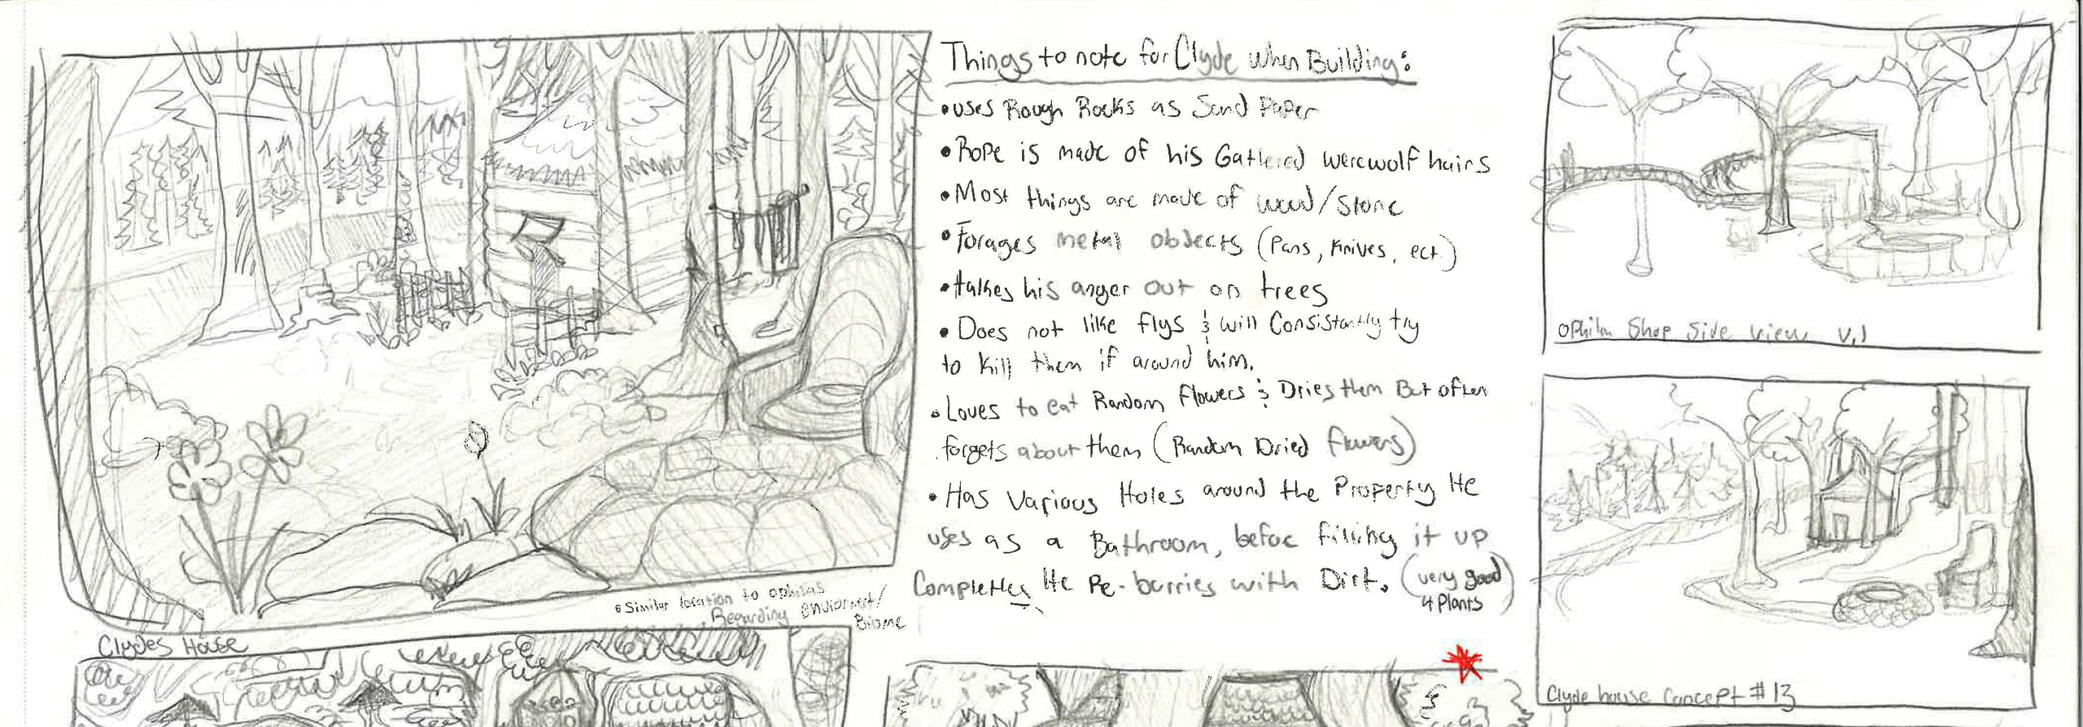 Things to note for Clyde when Building:
• uses Rough Rocks as Sand Paper
• Rope is made of his Gathered werewolf hairs
• Most things are made of wood/Stone
• Forages metal objects (Pans, Knives, ect.)
• takes his anger out on trees
• Does not like flys & will Consistantly try
to kill them if around him.
• Loves to eat Random flowers & Dries them But often
forgets about them (Random Dried flowers)
• Has Various Holes around the Property He
uses as a Bathroom, before filling it up
Completley He Re-burries with Dirt. (very good
4 Plants)
• Similar location to ophilas
Regarding enviorment/
Biome
Clydes House
Ophila Shop Side View V.1
Clyde house Concept #13